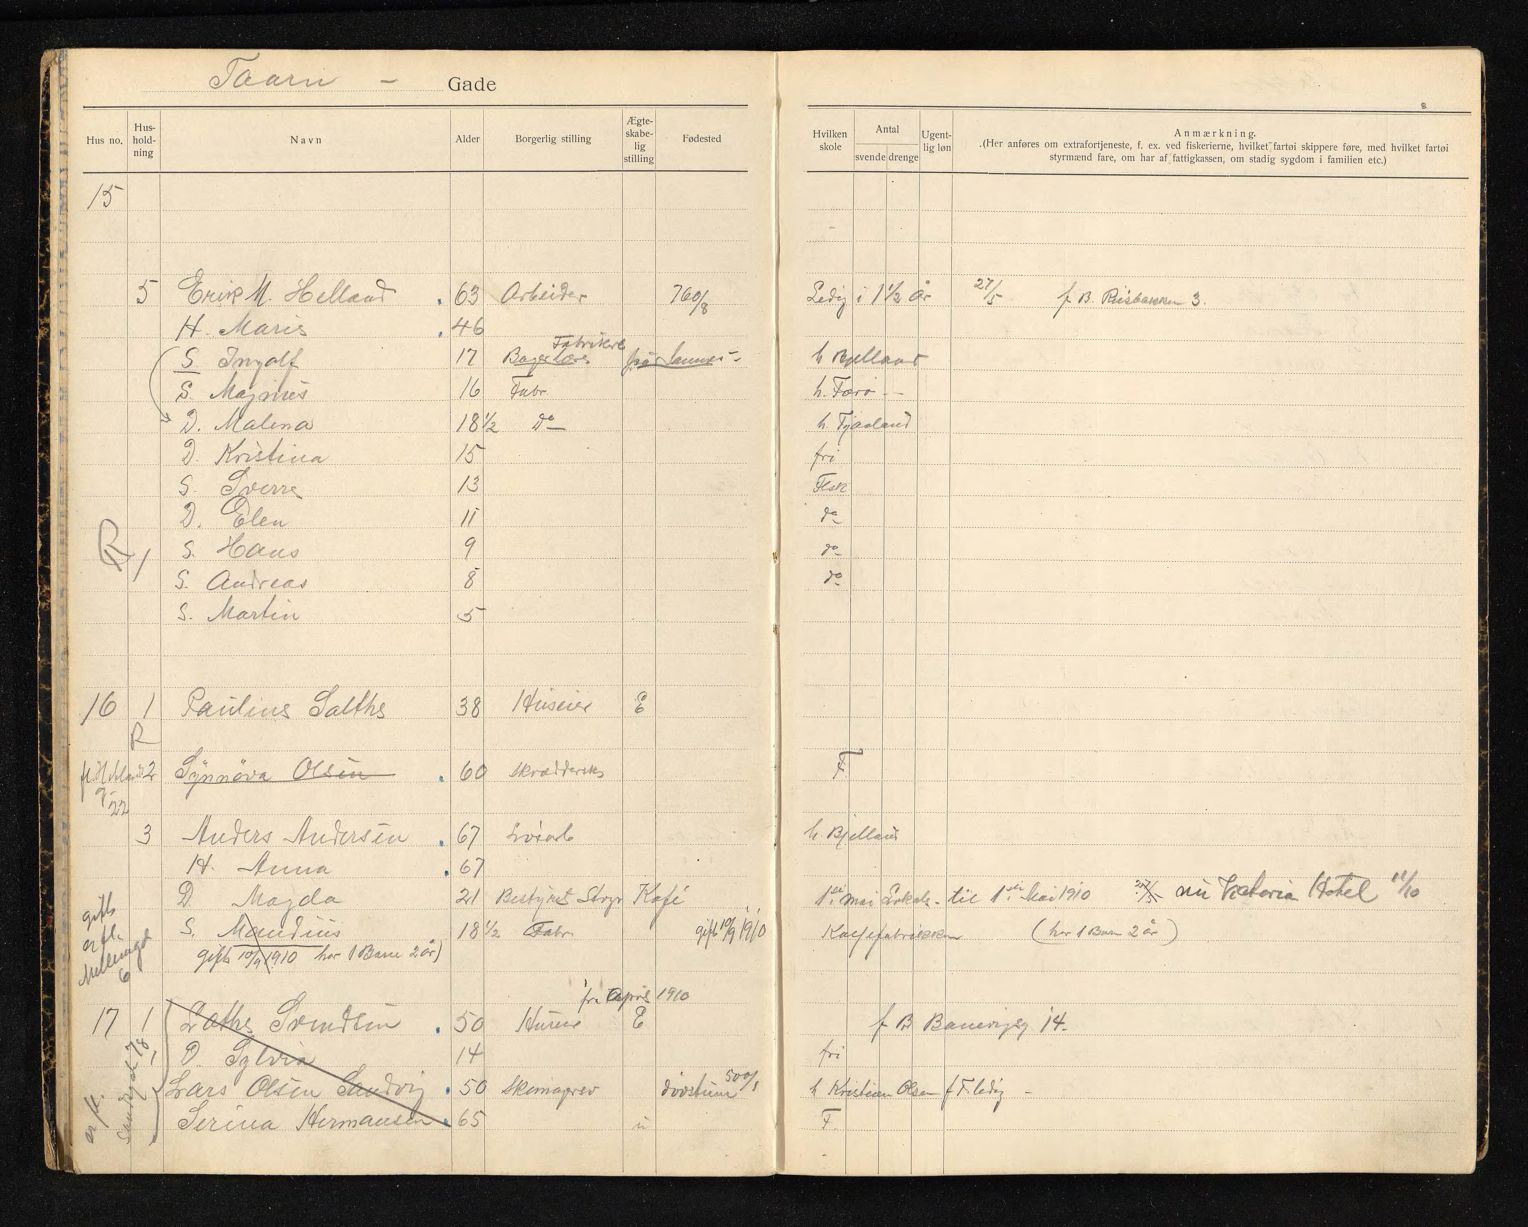 Taarn - Gade
8
Hus no. Hus-holdning Navn Alder Borgerlig stilling Ægteskabelig stilling Fødested Hvilken skole Antal svende drenge Ugentlig løn Anmærkning.
(Her anføres om extrafortjeneste, f. ex. ved fiskerierne, hvilket fartøi skippere føre, med hvilket fartøi
styrmænd fare, om har af fattigkassen, om stadig sygdom i familien etc.)
15
5 Erik M. Helland 63 Arbeider 760/8 Ledig i 1 1/2 år 27/5 f B. Risbakken 3.
H. Marie 46
Fabrikere
S. Ingolf 17 Bager h Bjelland
S. Magnus 16 Fabr h. Færø -
D. Malena 18 1/2 Do h Tjaaland
D. Kristina 15 fri
S. Sverre 13 Flsk
D. Elen 11 do
R 1 S. Hans 9 do
S. Andreas 8 do
S. Martin 5
16 1 Paulius Salthe 38 Huseier E
R
2 Synnøva Olsen 60 Skrædderske
9/22
3 Anders Andersen 67 Løsarb h. Bjelland
H. Anna 67
D. Magda 21 Bestyrer Kafé 1ste mai - til 1ste Mai 1910 nu Viktoria Hotel 11/10
gift
er fl.
6
S. Maudius 18 1/2 Fabr gift 10/9 1910 (har 1 Barn 2 år)
gift 10/9 1910 har 1 Barn 2 år)
fra April 1910
17 1 Svendsen 50 E f B 14.
D. Sylvia 14 fri
Lars Olsen Sandvig 50 Skomagersv døvstum 500/1 h Kristian Olsen f F. ledig -
Serina Hermansen 65 F.
er fl.